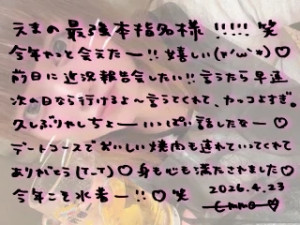 えまの最強本指名様!!!!! 笑
今年やっと会えたー!! 嬉しい(〃'ω'〃)♡
前日に近況報告会したい!! 言うたら早速
次の日なら行けるよ〜言うてくれて、カッコよすぎ。
久しぶりやしちょーーいぱい話したなー♡
デートコースでおいしい焼肉も連れていってくれて
ありがとう(T_T)♡身も心も満たされました♡
今年こそ水着ー!!♡笑
2026.4.23
emma♡